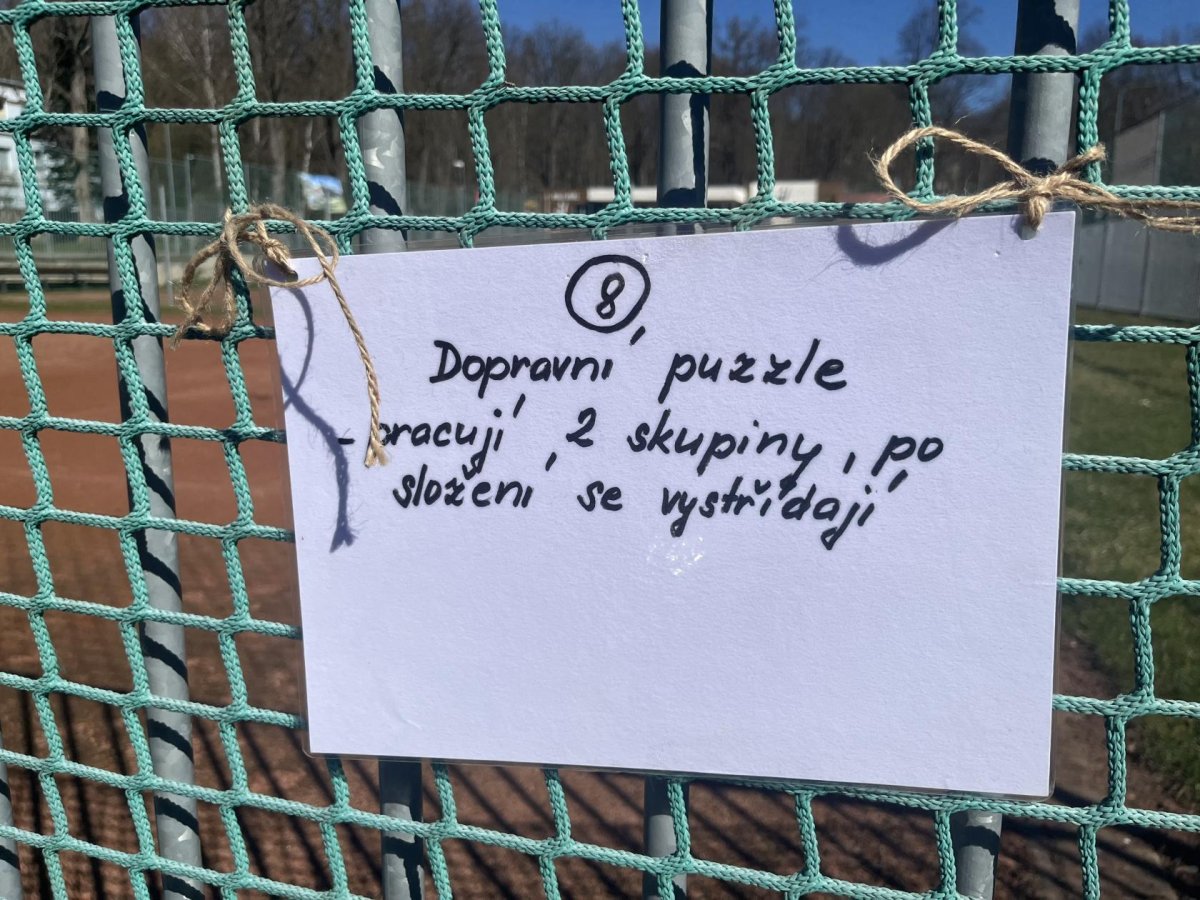 8
Dopravní puzzle
- pracují 2 skupiny, po
složení se vystřídají